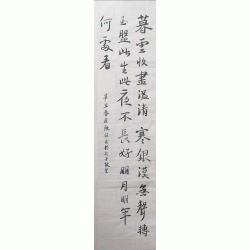 暮雲收盡溢清寒銀漢無聲轉
玉盤此生此夜不長好明月明年
何處看
辛丑春